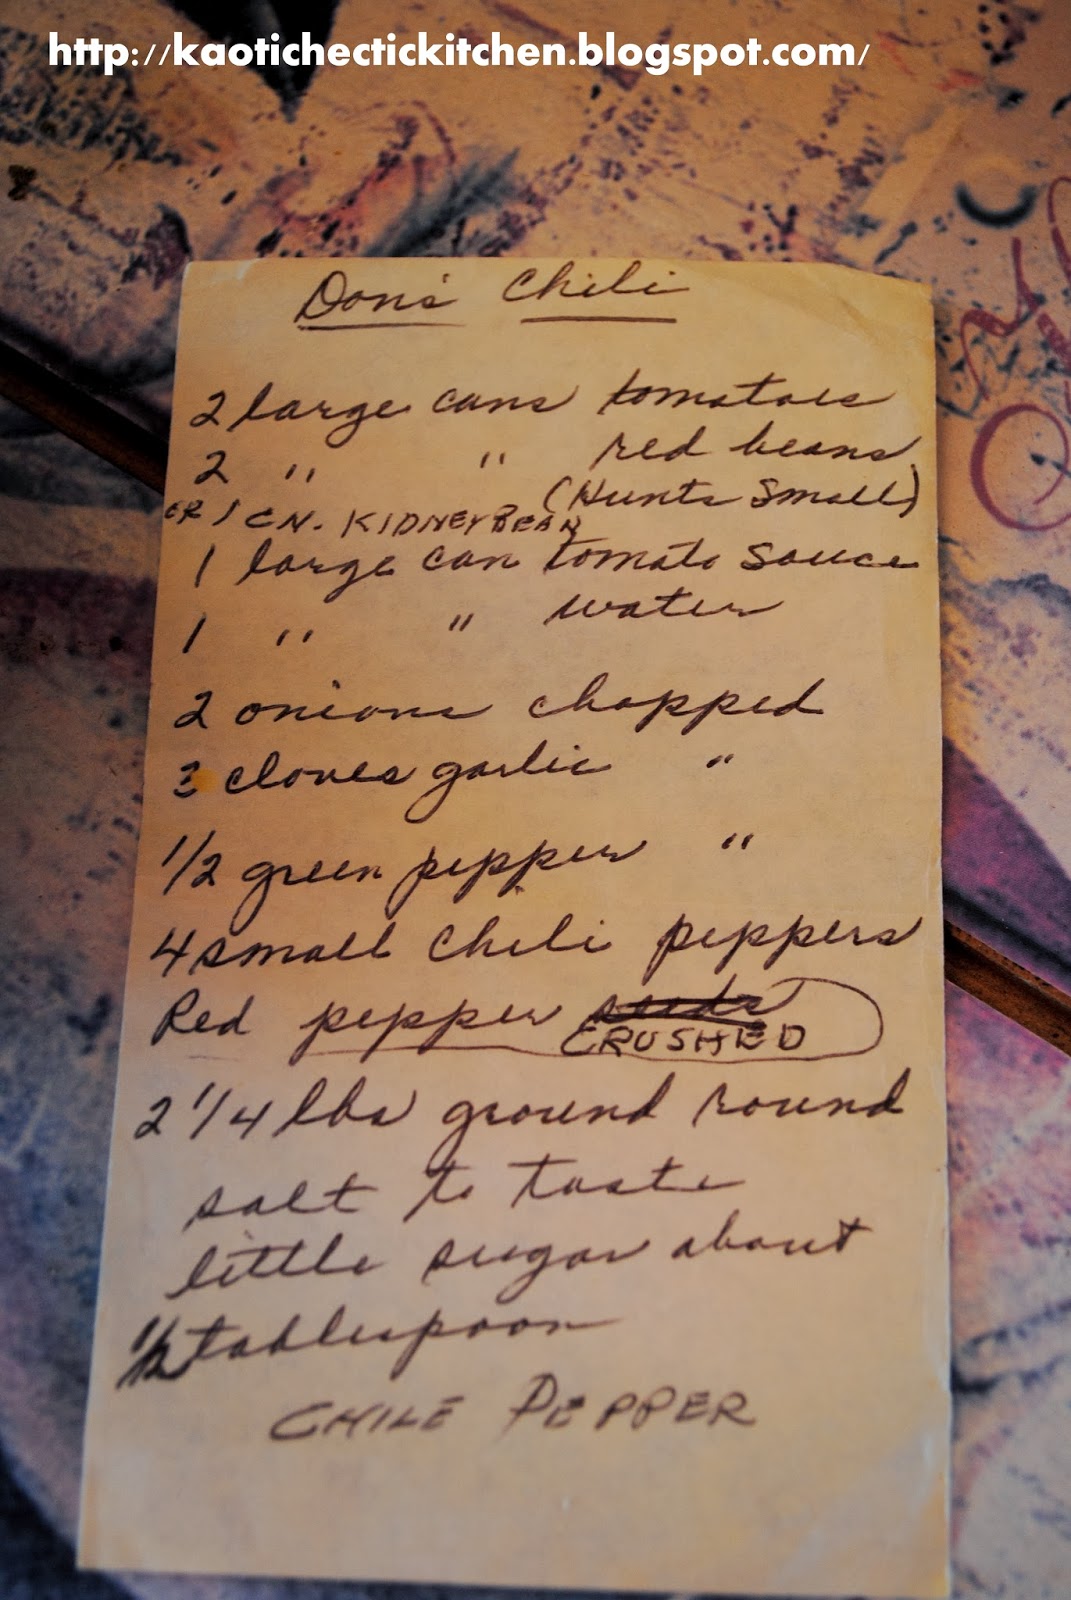 http://kaotichectickitchen.blogspot.com/
Don's Chili
2 large cans tomatoes
2 " " red beans
(Hunts small)
OR 1 CN. KIDNEY BEAN
1 large can tomato sauce
1 " " water
2 onions chopped
3 cloves garlic "
1/2 green pepper "
4 small chili peppers
Red pepper seeds
CRUSHED
2 1/4 lbs ground round
salt to taste
little sugar about
1/2 tablespoon
CHILE PEPPER